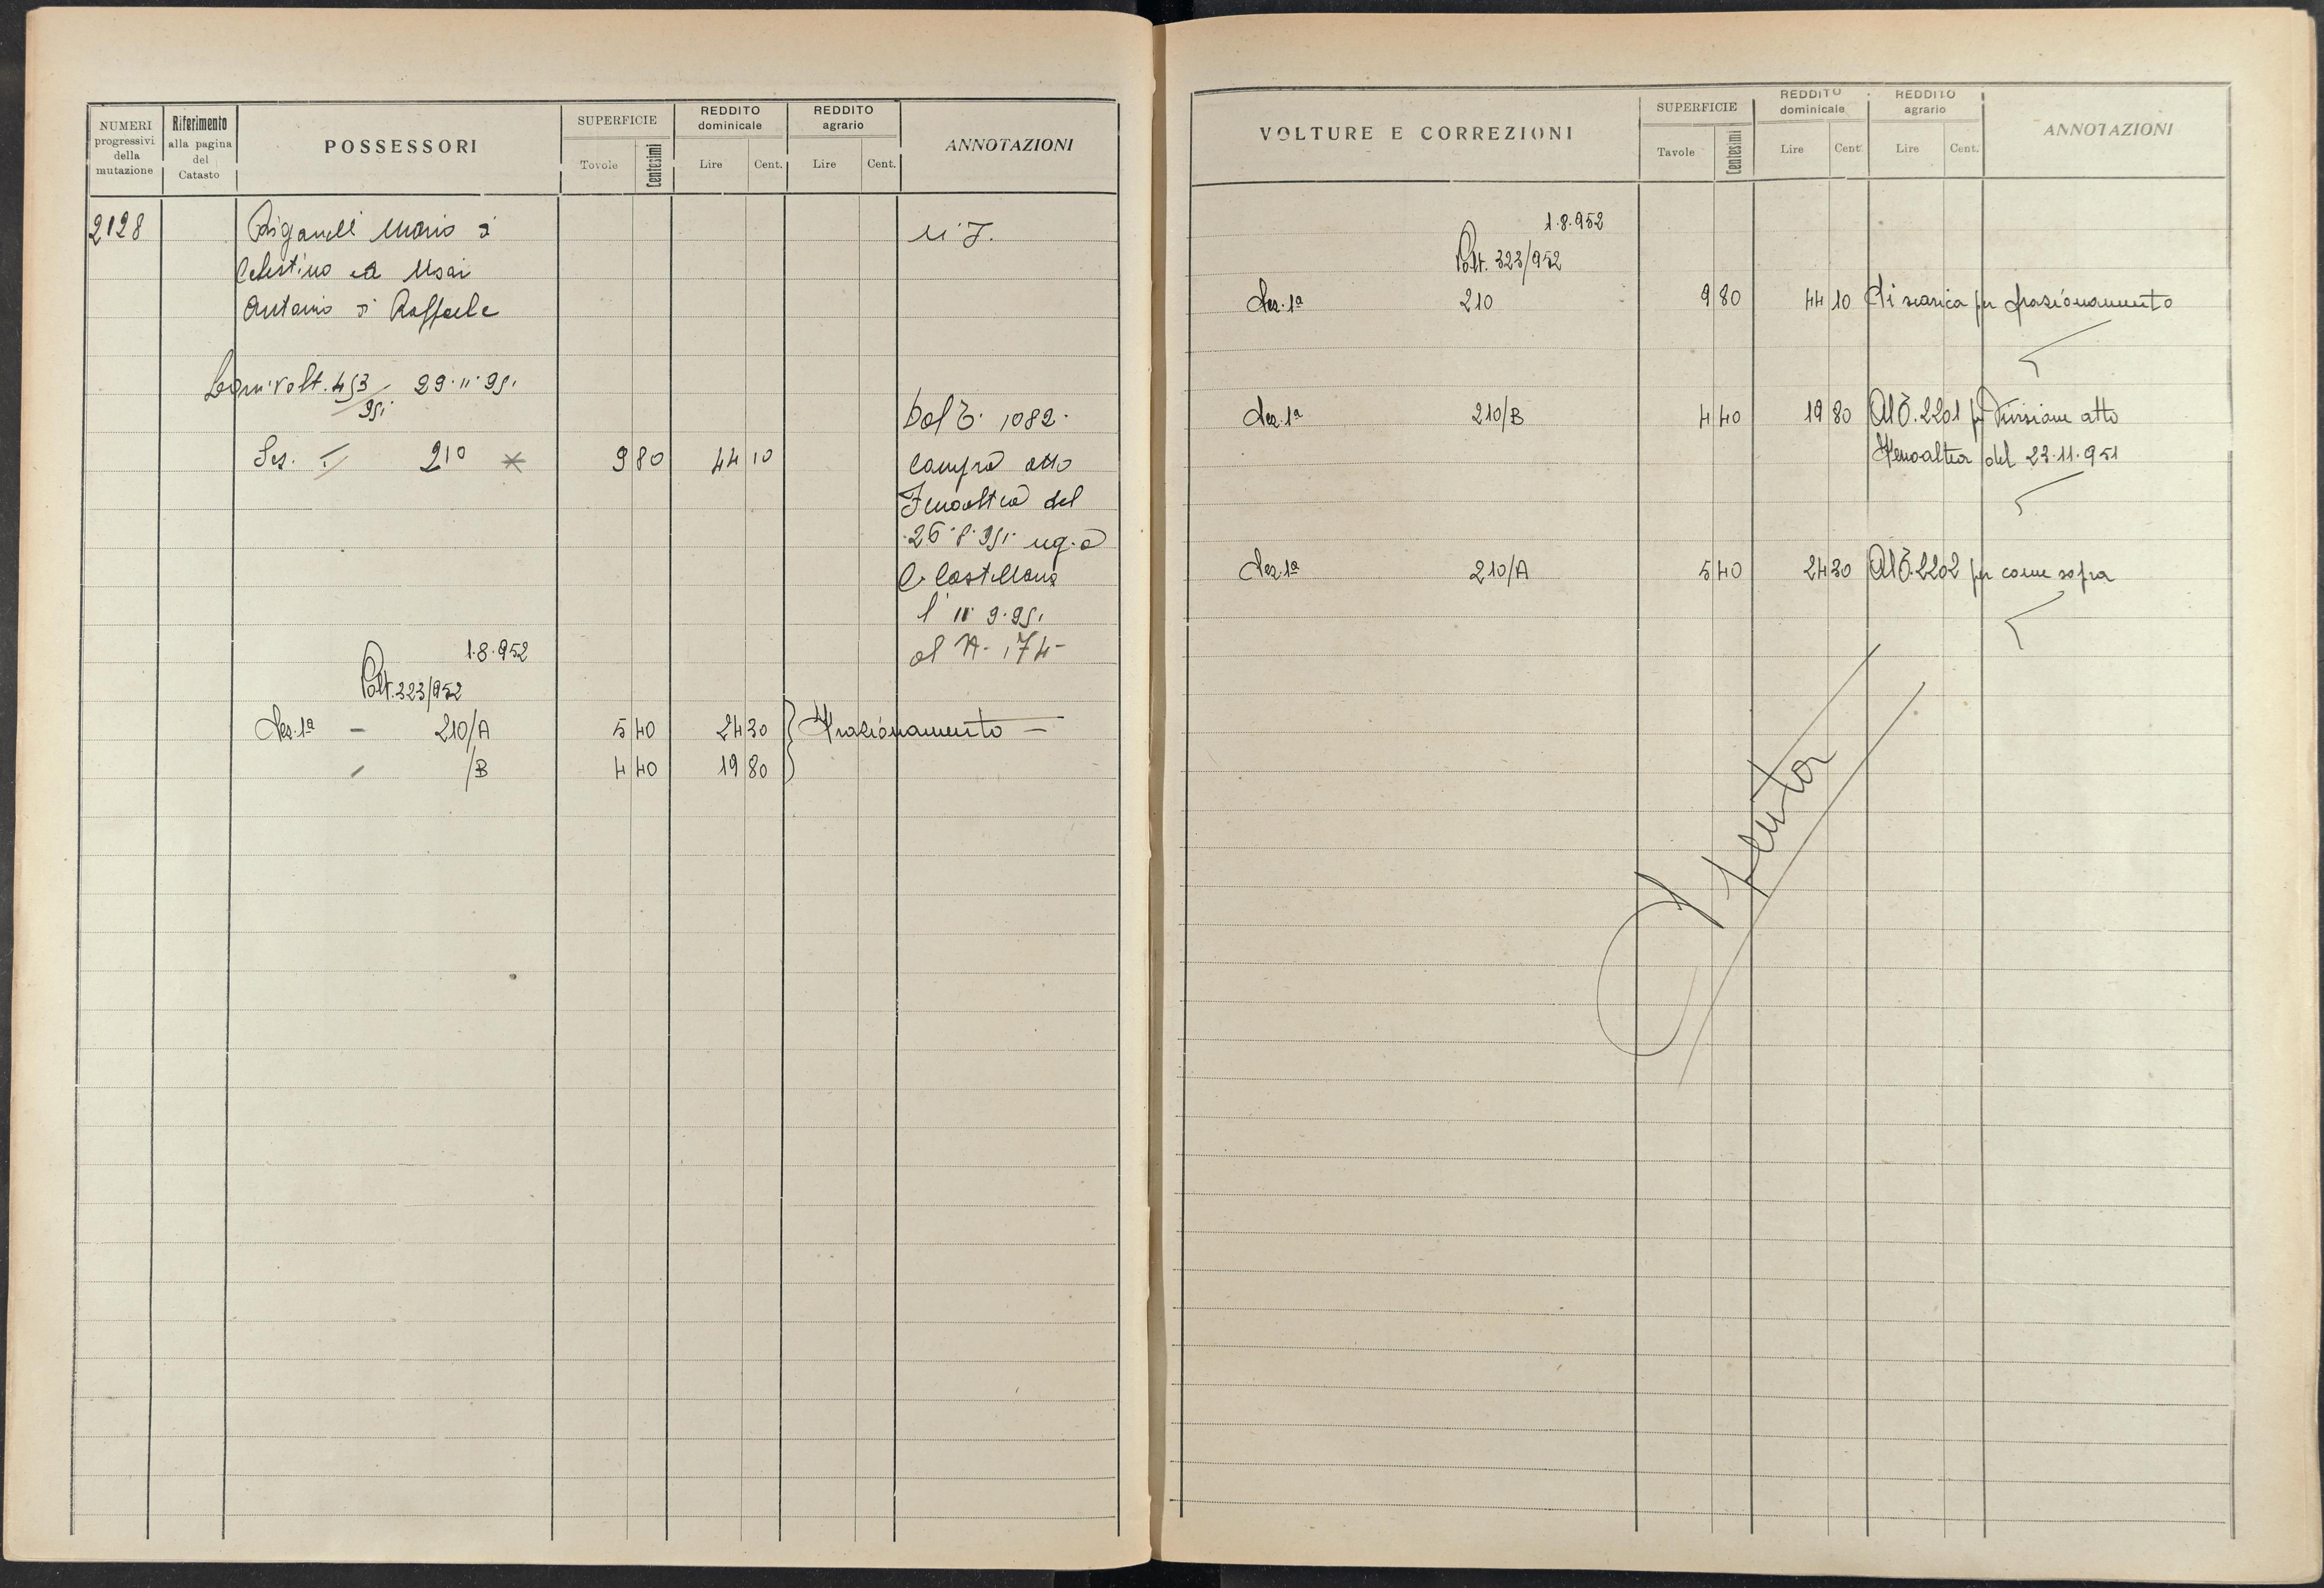 NUMERI
progressivi
della
mutazione
Riferimento
alla pagina
del
Catasto
POSSESSORI
SUPERFICIE
Tovole
Centesimi
REDDITO
dominicale
Lire
Cent.
REDDITO
agrario
Lire
Cent.
ANNOTAZIONI
2128
Mario di
Celestino e
Antonio di Raffaele
volt. 453/951 29.11.951
Sez. I 210 * 9 80 44 10
1.8.952
Volt. 323/952
Sez. 1ª - 210/A 5 40 24 30 Frazionamento -
/B 4 40 19 80
Dal 1082
Compra atto
Fenoaltea del
26.8.951 reg. a
C. Castellana
l' 11.9.951
al N. 174
VOLTURE E CORREZIONI
SUPERFICIE
Tavole
Centesimi
REDDITO
dominicale
Lire
Cent.
REDDITO
agrario
Lire
Cent.
ANNOTAZIONI
1.8.952
Volt. 323/952
Sez. 1ª 210 9 80 44 10 Si scarica per frazionamento
Sez. 1ª 210/B 4 40 19 80 Al 2201 per Divisione atto
Fenoaltea del 23.11.951
Sez. 1ª 210/A 5 40 24 30 Al 2202 per come sopra
Spenta